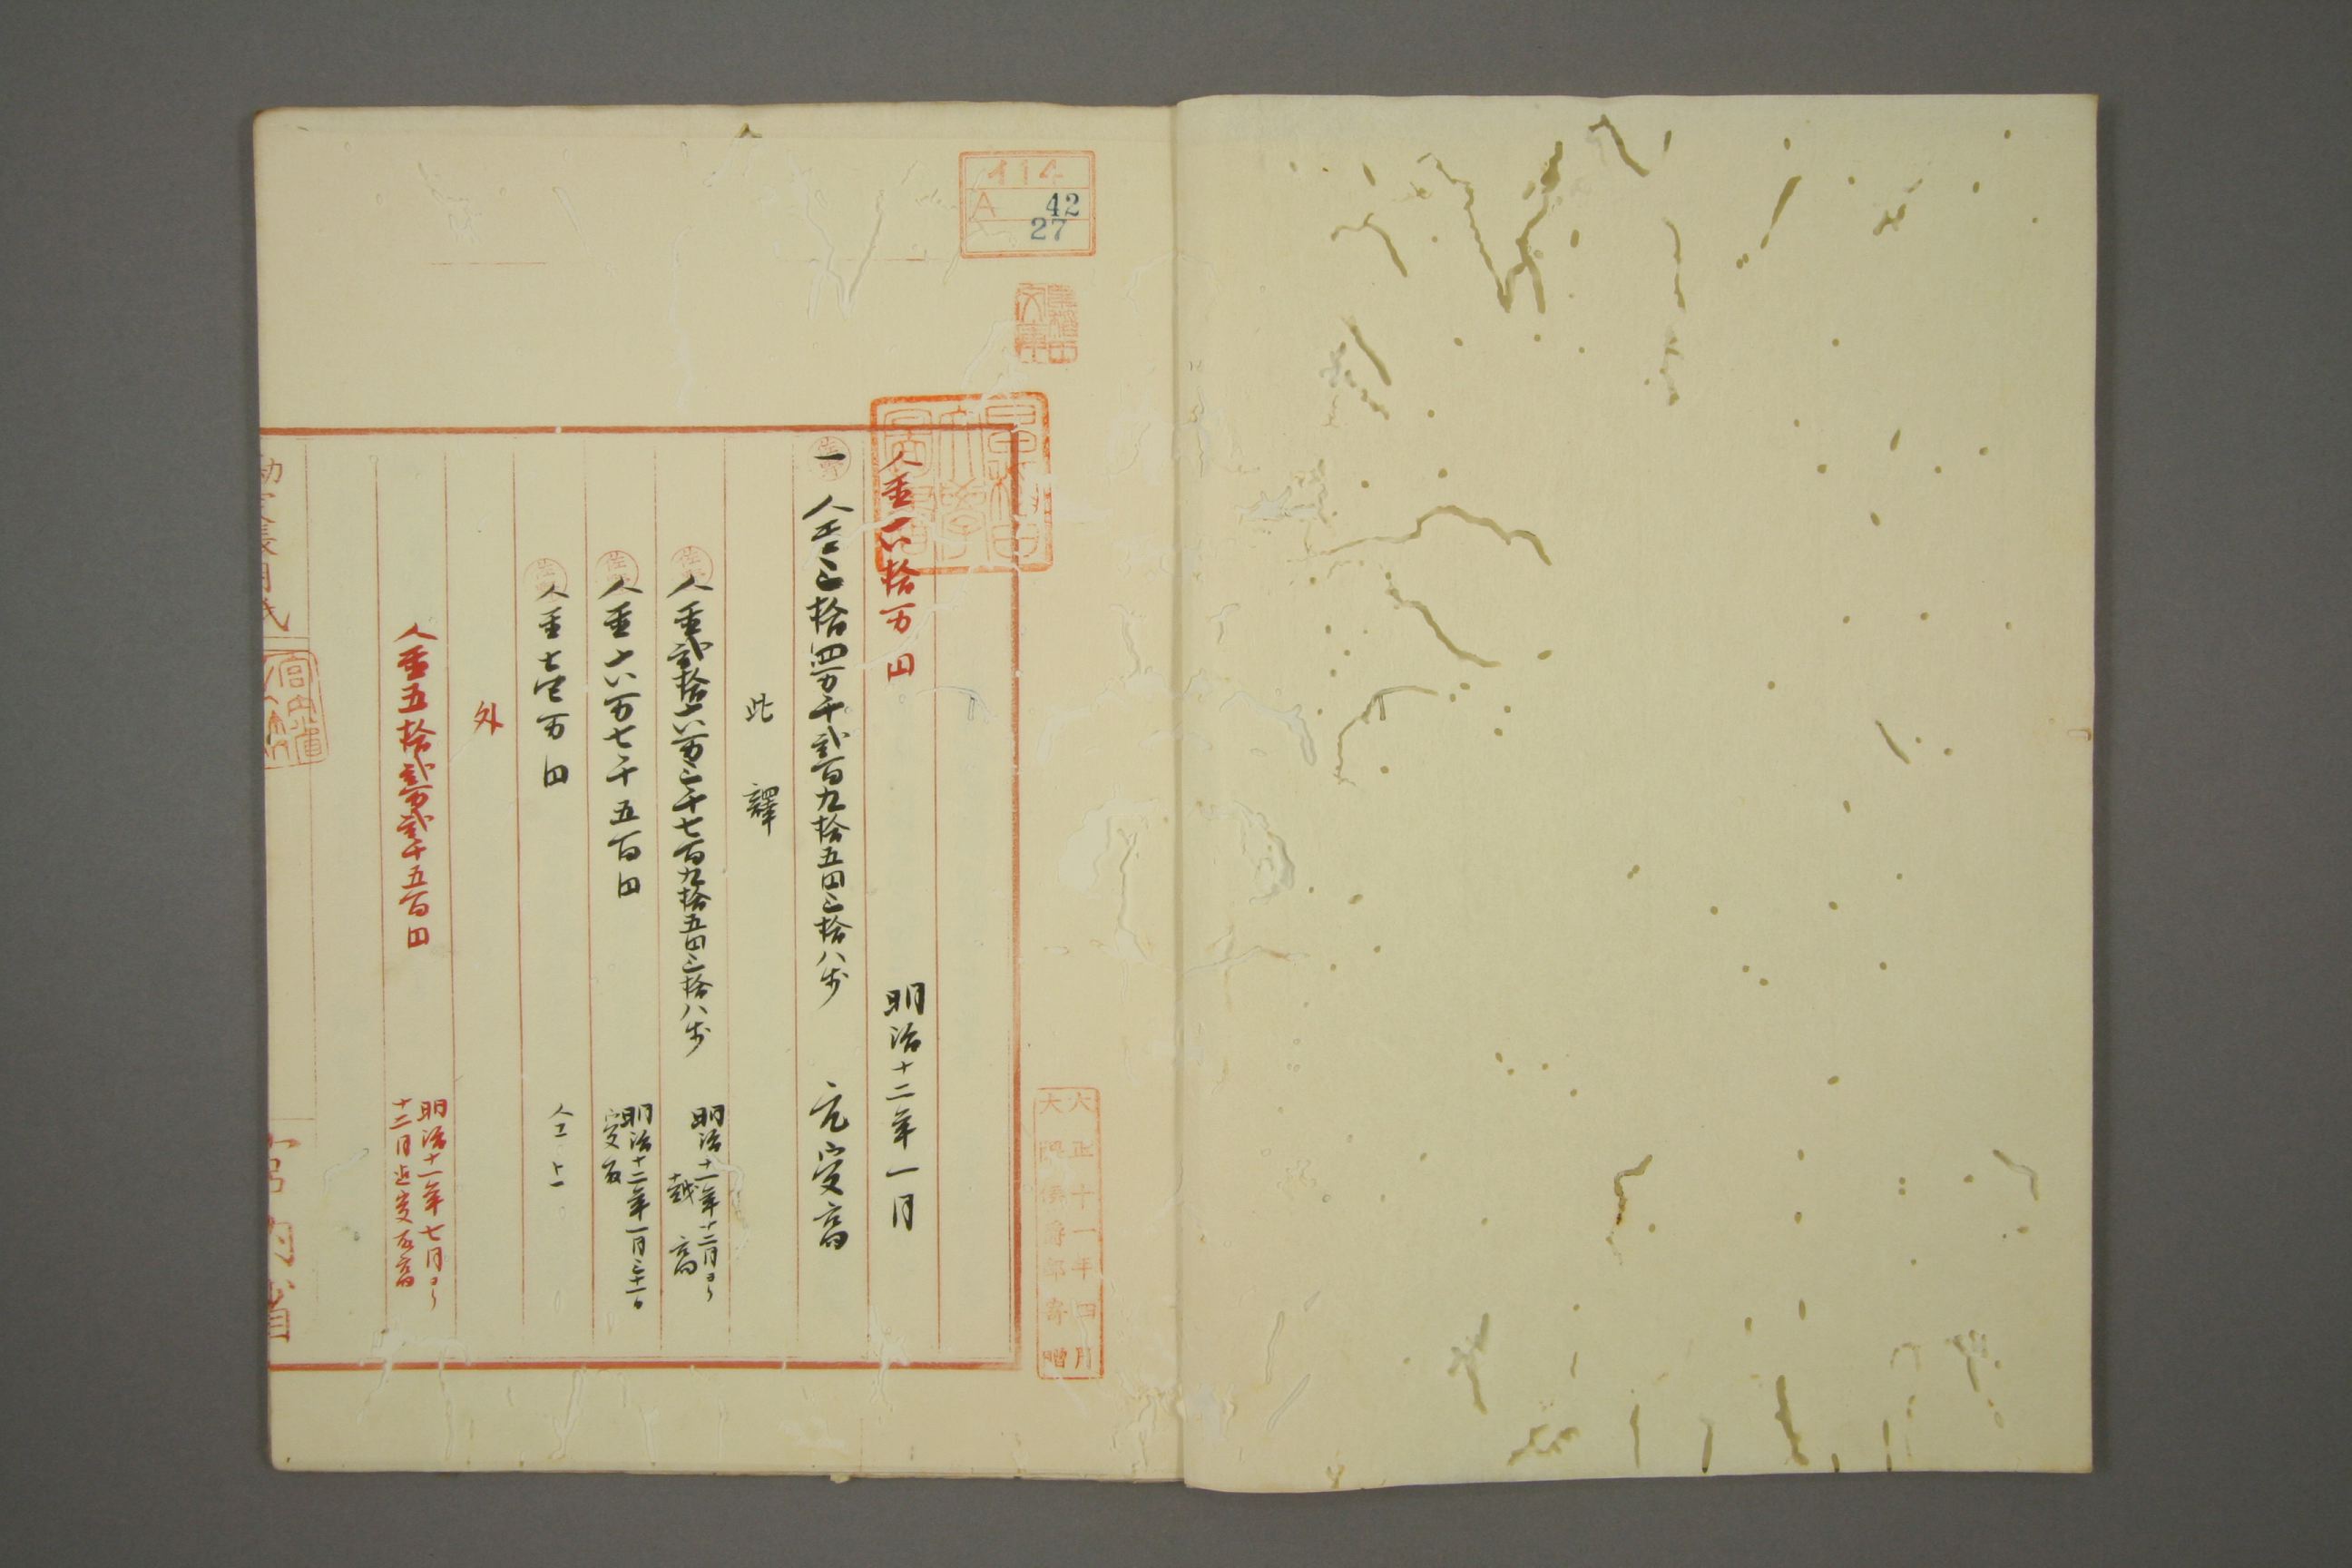 414
A 42
27
大正十一年四月
大隈侯爵邸寄贈
金六拾万円
明治十二年一月
一 金三拾四万千弐百九拾五円三拾八歩 元受高
此譯
金弐拾六万三千七百九拾五円三拾八歩 明治十一年十二月ヨリ
越高
金六万七千五百円 明治十二年一月三十一日
受取
金壱万円 仝上
外
金五拾弐万弐千五百円 明治十一年七月ヨリ
十二月迄受取高
宮内省